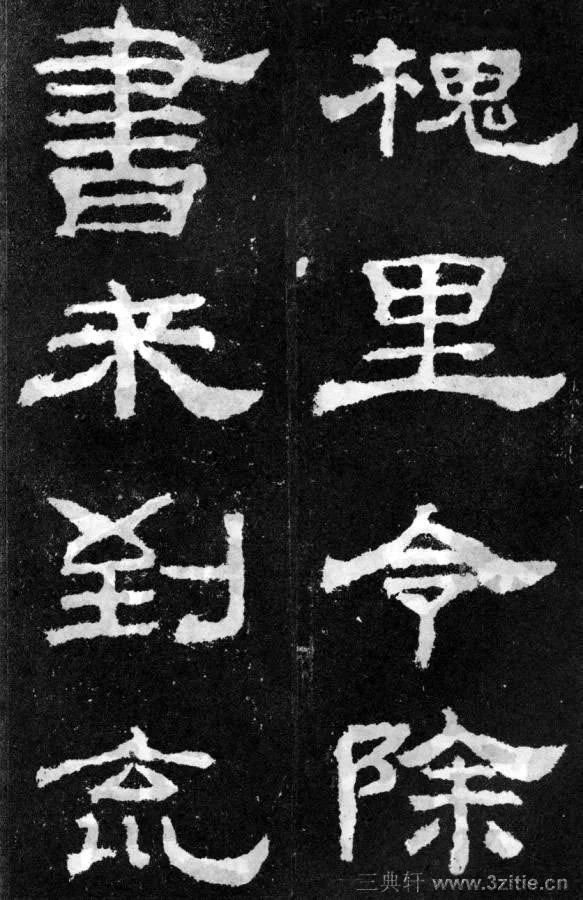 槐里令除
書来到充
三典轩 www.3zitie.cn